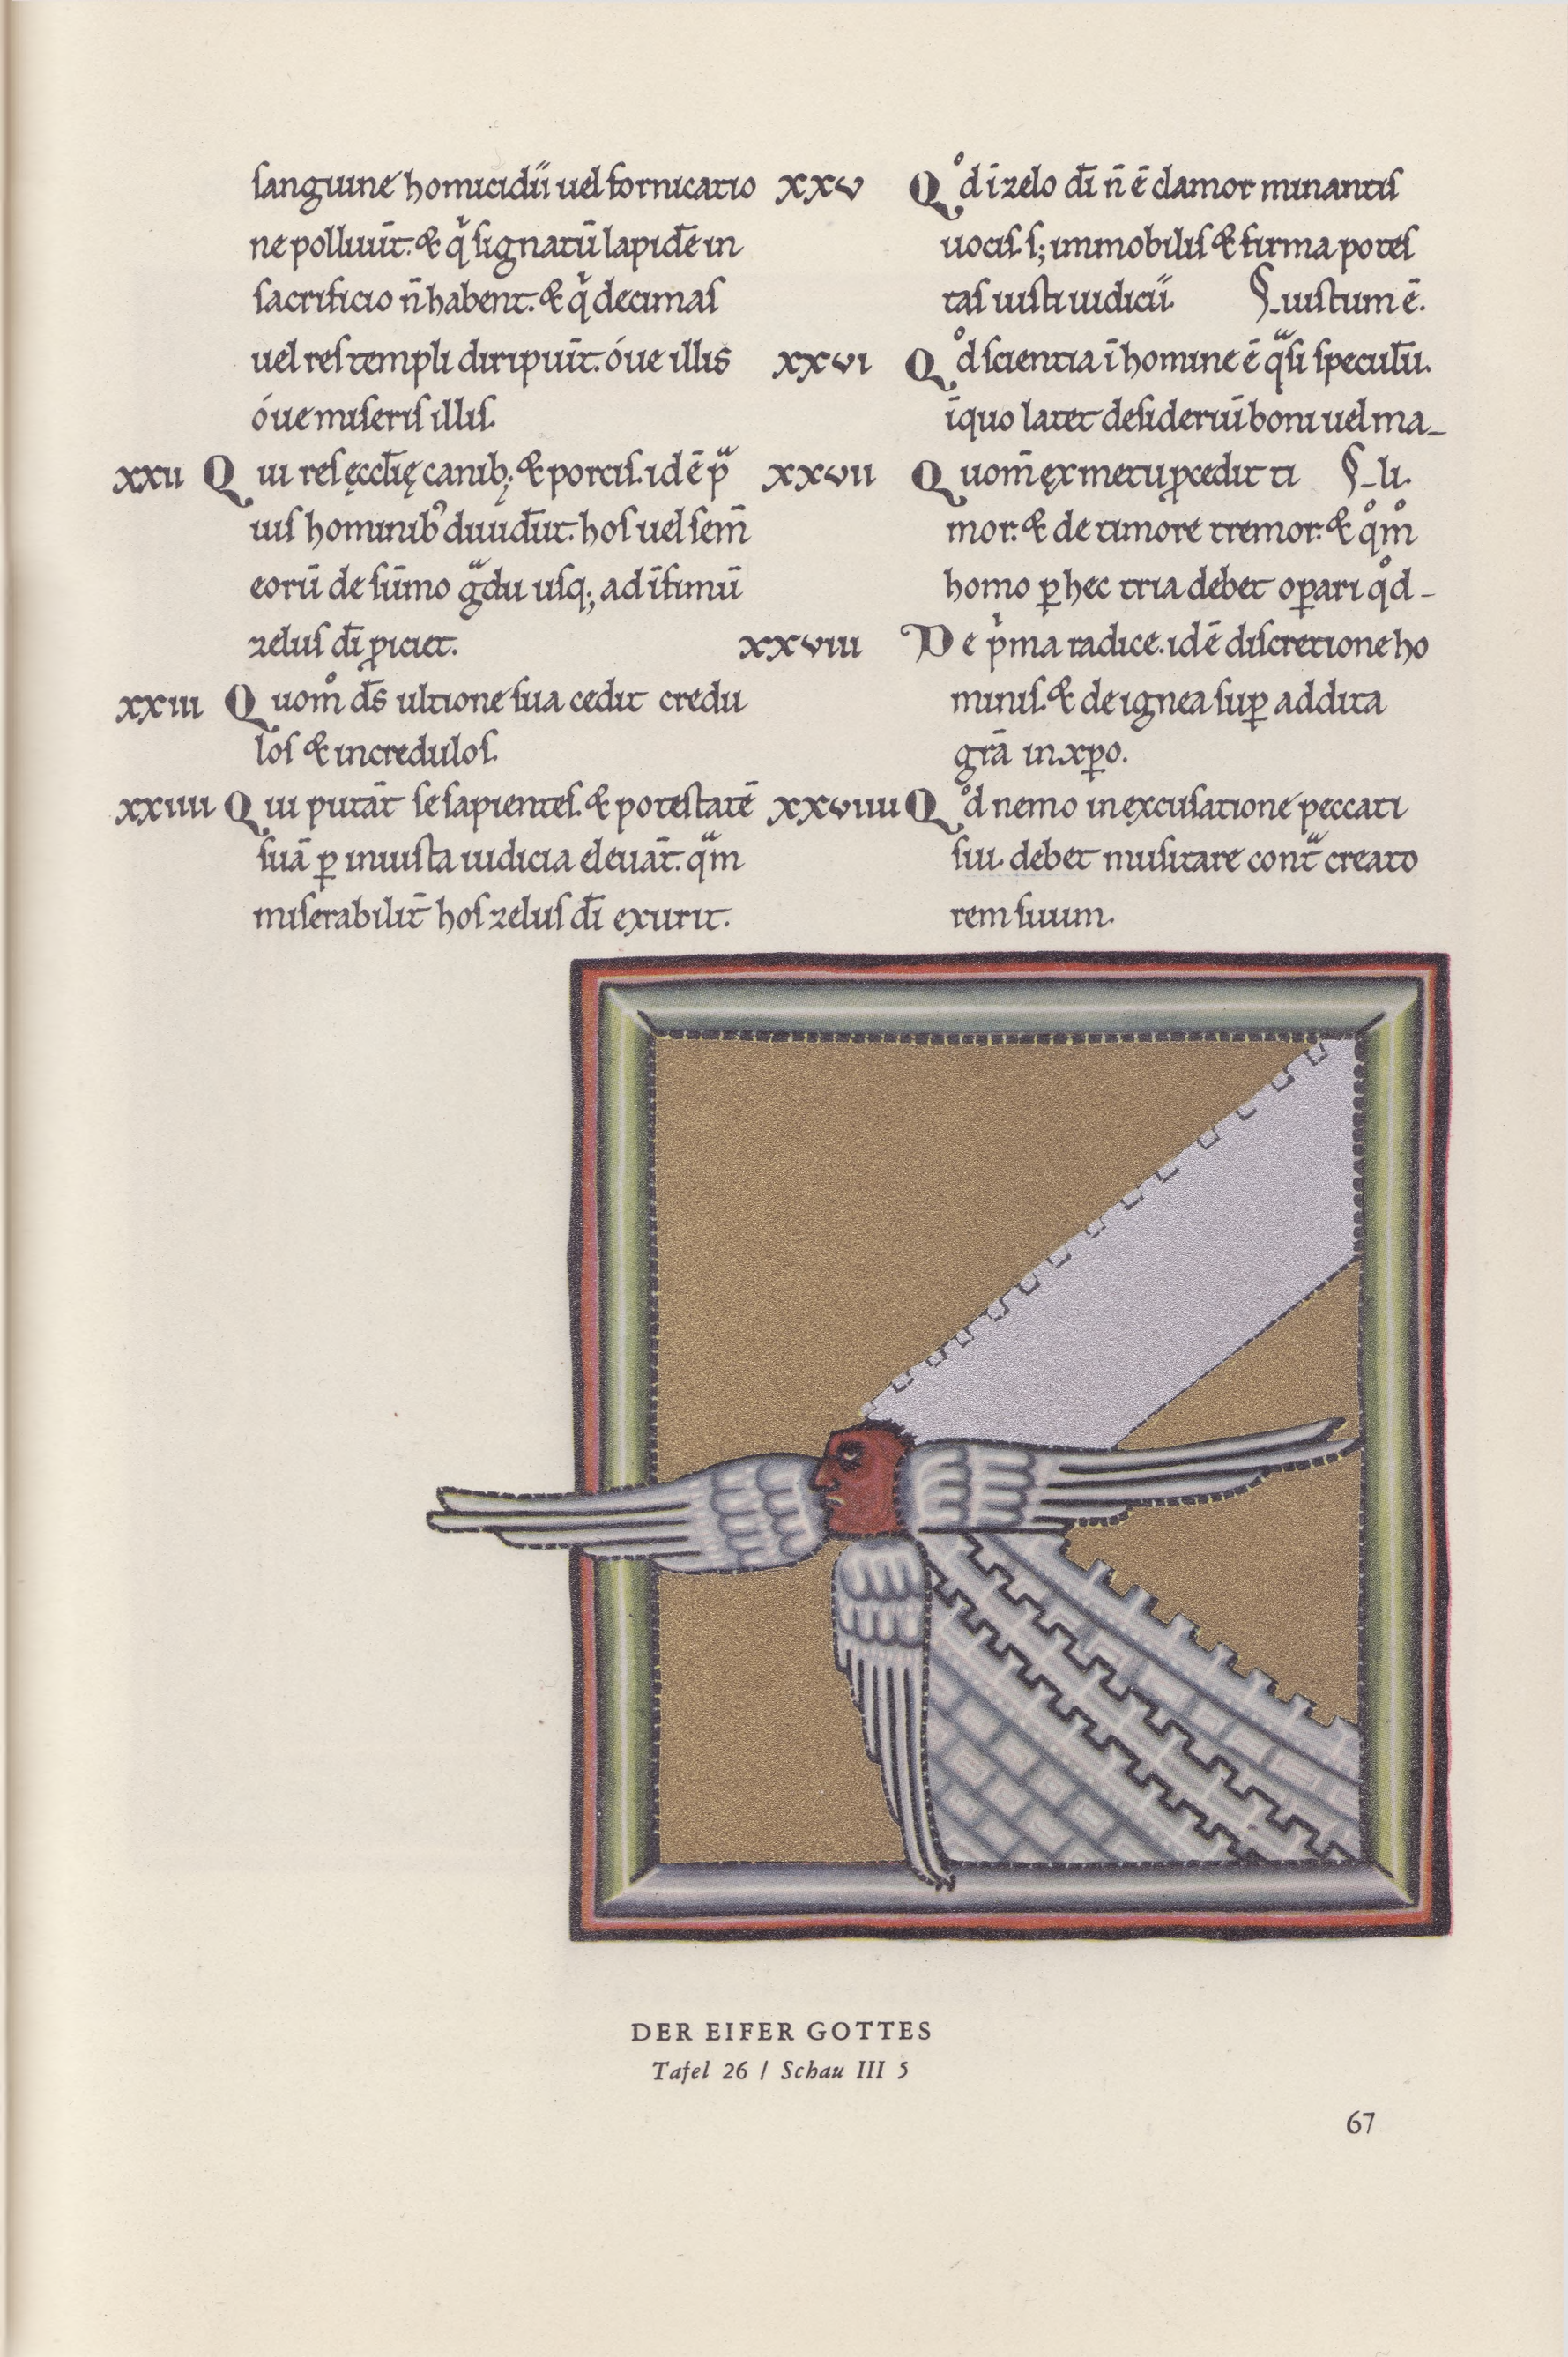 sanguine homicidii uel fornicatio
ne polluūt. & q̇ signatū lapidē in
sacrificio n̄ habent. & q̇ decimas
uel res templi diripuīt. óue illis
óue miseris illis.
XXII Qui res ęccłię canib; & porcis. id ē pᵃ
uis hominib⁹ diuidūt. hos uel sem̄
eorū de sūmo gᵃdu usq; ad īfimū
zelus dī ꝓiciet.
XXIII Quom̊ ds̄ ultione sua cedit credu
los & incredulos.
XXIIII Qui putāt se sapientes. & potestatē
suā ꝑ iniusta iudicia eleuāt. qᵃm
miserabilit̄ hos zelus dī exurit.
XXV Q̊d ī zelo dī n̄ ē clamor minantis
uocis. s; immobilis & firma potes
tas iusti iudicii. iustum ē.
XXVI Q̊d scientia ī homine ē qᵃsi speculū.
īquo latet desideriū boni uel ma-
XXVII Quom̄ ęx metu ꝓcedit ti li.
mor. & de timore tremor. & q̊m̊
homo ꝑ hec tria debet oꝑari q̊d-
XXVIII De pⁱma radice. id ē discretione ho
minis. & de ignea suꝑ addita
grā in xp̄o.
XXVIIII Q̊d nemo in ęxcusatione peccati
sui debet musitare contᵃ creato
rem suum.
DER EIFER GOTTES
Tafel 26 / Schau III 5
67